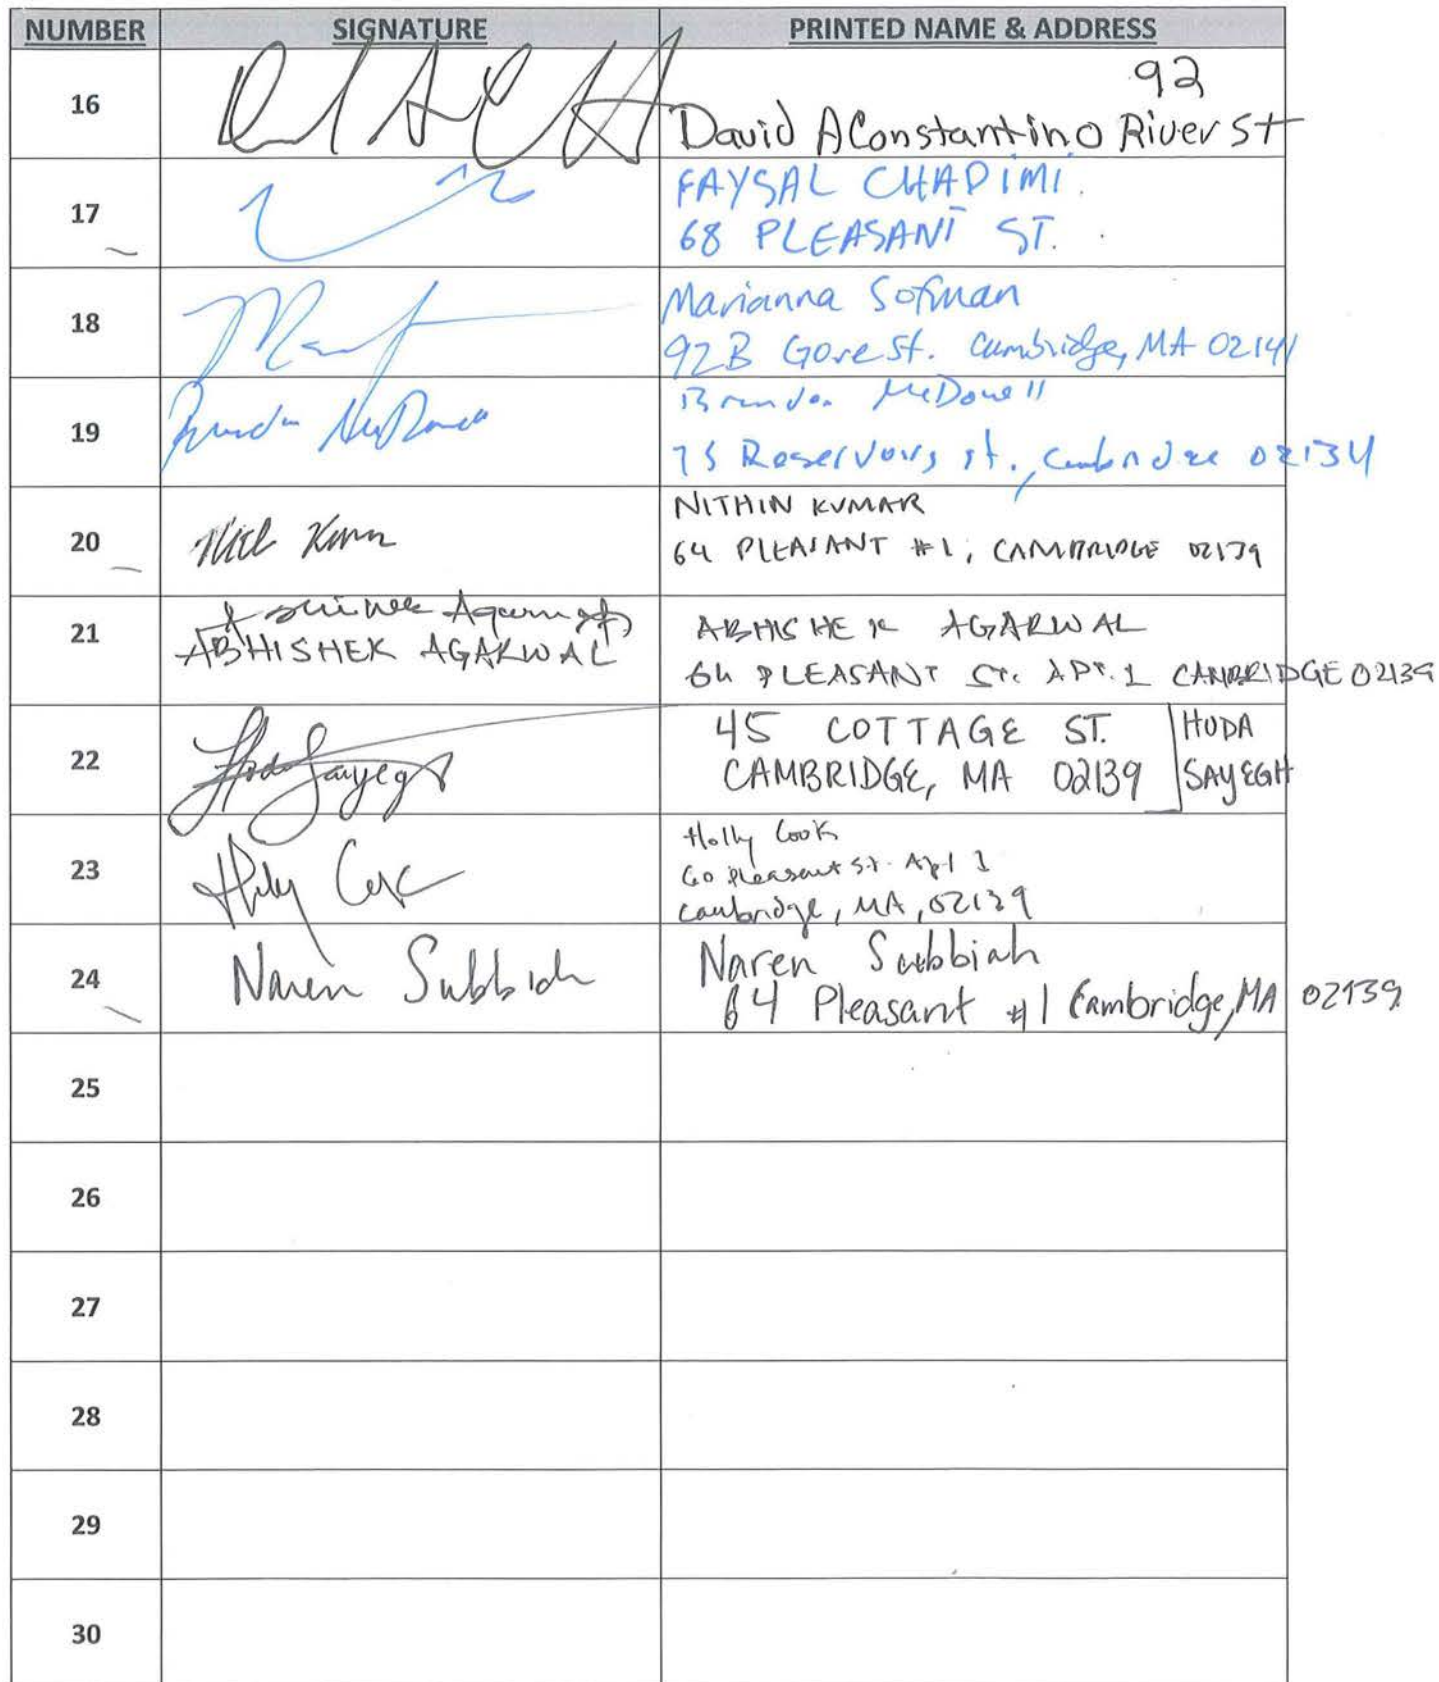 NUMBER SIGNATURE PRINTED NAME & ADDRESS
16 92
David A Constantino River St
17 FAYSAL CHADIMI.
68 PLEASANT ST.
18 Marianna Sofman
92B Gore St. Cambridge, MA 02141
19 Brendon McDowell
75 Reservoirs st., Cambridge 02134
20 NITHIN KUMAR
64 PLEASANT #1, CAMBRIDGE 02139
21 Agarwal
ABHISHEK AGARWAL
ABHISHEK AGARWAL
64 PLEASANT ST. APT. 1 CAMBRIDGE 02139
22 Hoda Sayegh
45 COTTAGE ST. HUDA
CAMBRIDGE, MA 02139 SAYEGH
23 Holly Cook
60 Pleasant St. Apt 1
Cambridge, MA, 02139
24 Naren Subbiah
Naren Subbiah
64 Pleasant #1 Cambridge, MA 02139
25
26
27
28
29
30